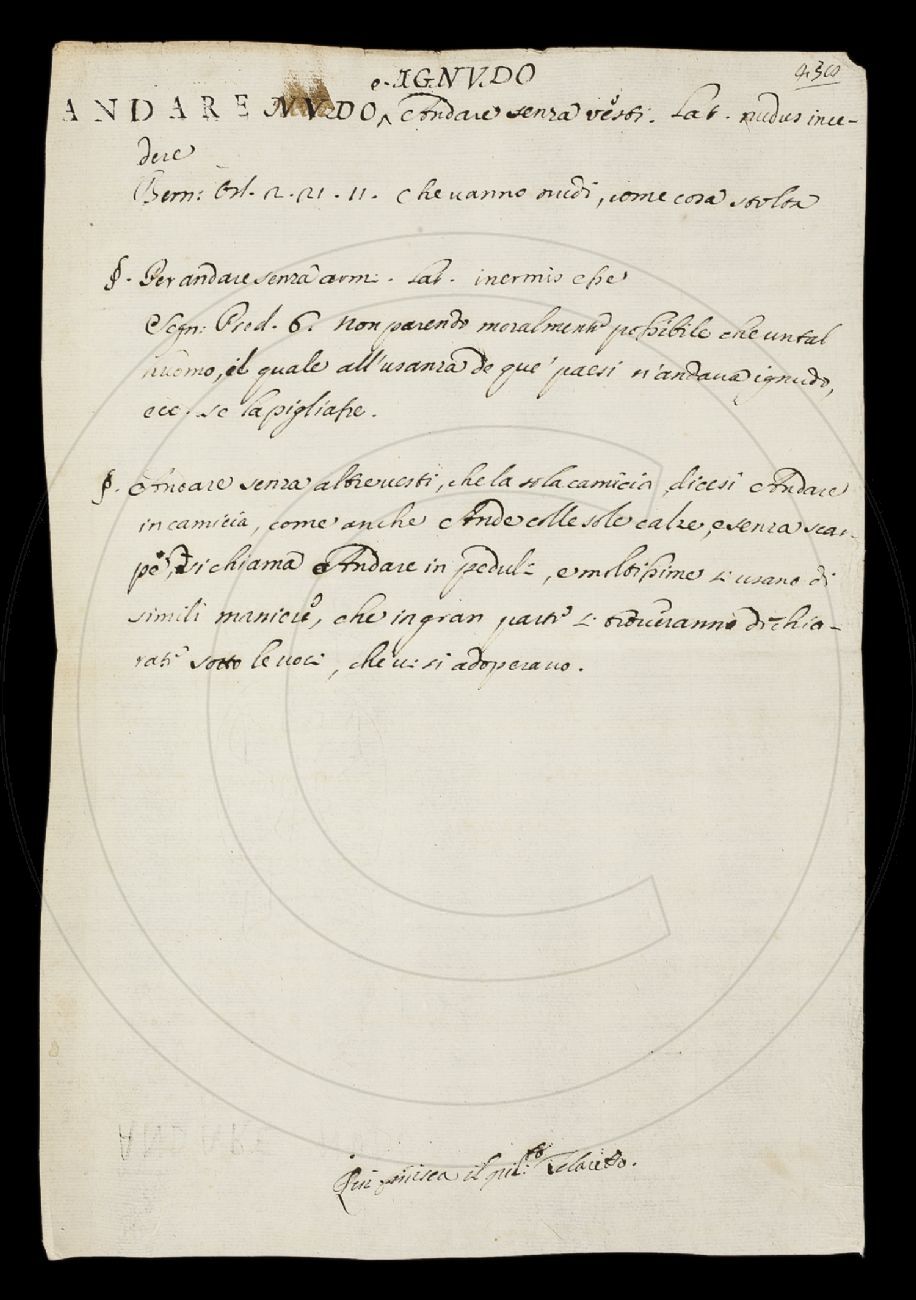 e. IGNVDO
ANDARE NVDO, Andare senza vesti. Lat. nudus ince-
dere
Bern: Orl. 2. 21. 11. Che vanno nudi, come cosa stolta
§. Per andare senza armi. Lat. inermis esse
Segn: Pred. 6. Non parendo moralmente possibile che un tal
huomo, il quale all'usanza de que' paesi n'andava ignudo,
ecc. se la pigliasse.
§. Andare senza altre vesti, che la sola camicia, dicesi Andare
in camicia, come anche Ande colle sole calze, e senza scar-
pe, si chiama Andare in peduli, e moltissime si usano di
simili maniere, che in gran parte si troveranno dichia-
rate sotto le voci, che vi si adoperano.
Qui finisca il